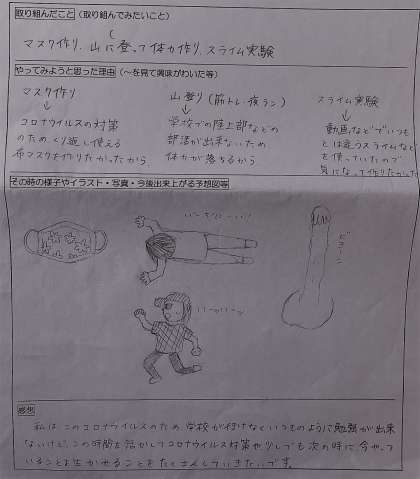 取り組んだこと（取り組んでみたいこと）
マスク作り、山に登って体力作り、スライム実験
やってみようと思った理由（～を見て興味がわいた等）
マスク作り
↓
コロナウイルスの対策
のためくり返し使える
布マスクを作りたかったから
山登り（筋トレ・夜ラン）
↓
学校での陸上部などの
部活が出来ないため
体力が落ちるから
スライム実験
↓
動画などでいつも
とは違うスライムなど
を使っていたので
気になって作りたかった
その時の様子やイラスト・写真・今後出来上がる予想図等
ビヨーン
感想
私はこのコロナウイルスのため、学校が行けないといつものように勉強が出来
ないけど、この時間を活かしてコロナウイルス対策や少しでも次の時に今やって
いることは生かせることをたくさんしていきたいです。